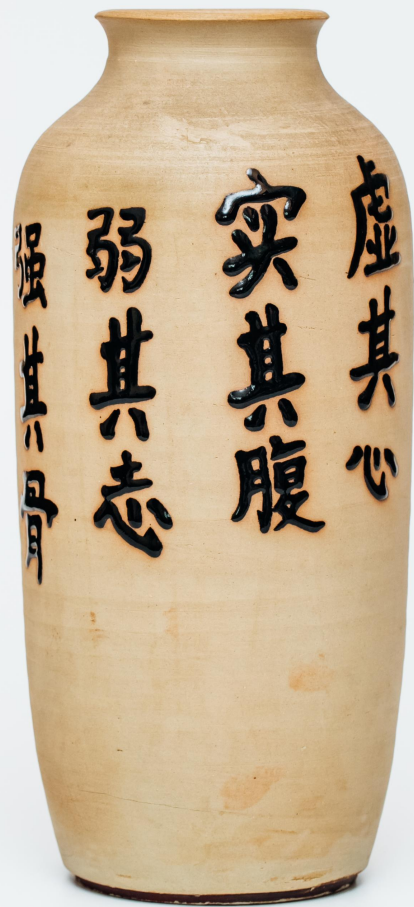 虚其心
实其腹
弱其志
强其骨